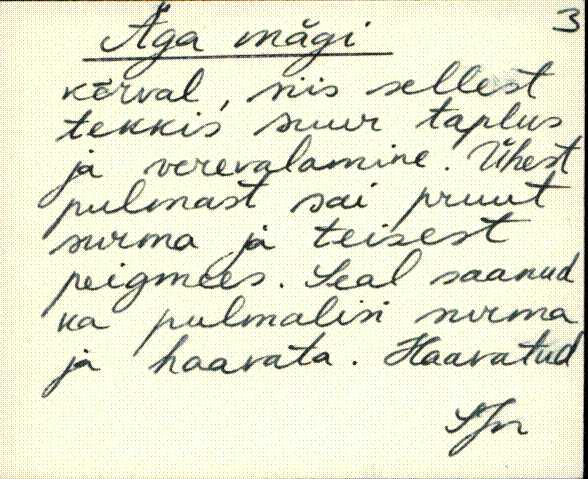 3
Äga mägi
kõrval, siis sellest
tekkis suur taplus
ja verevalamine. Ühest
pulmast sai pruut
surma ja teisest
peigmees. Seal saanud
ka pulmalisi surma
ja haavata. Haavatud